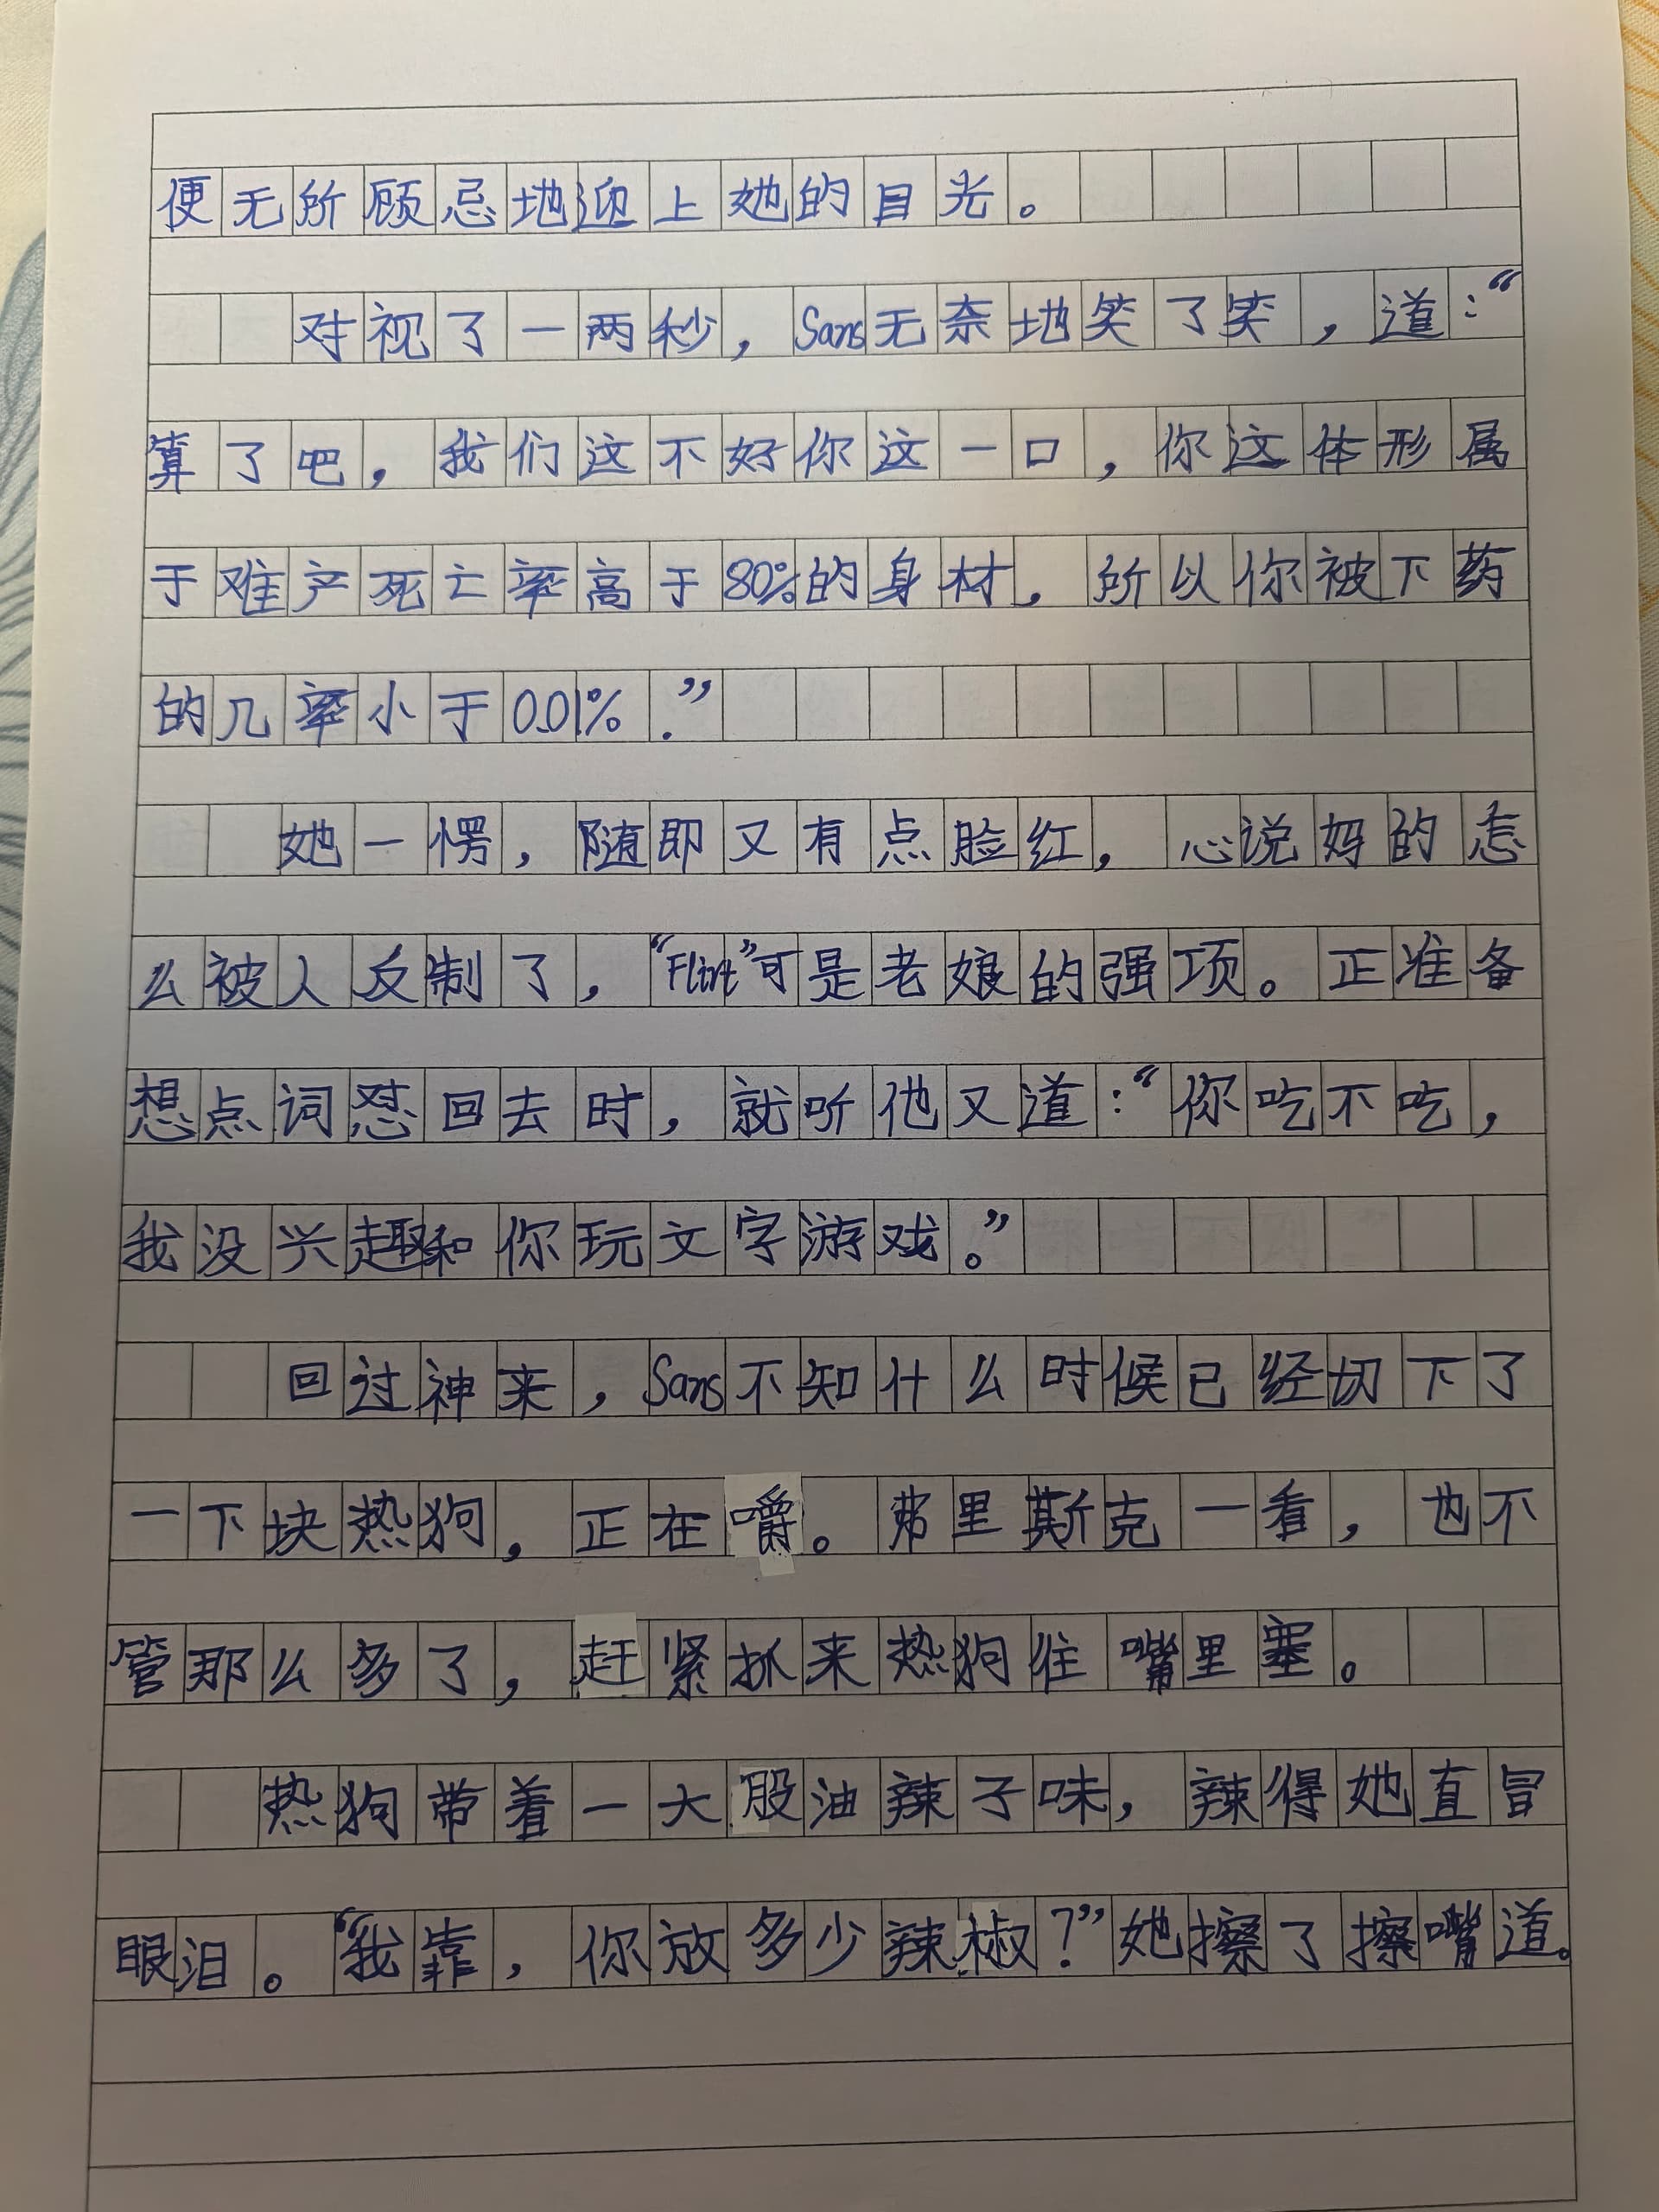 便无所顾忌地迎上她的目光。
对视了一两秒，Sans无奈地笑了笑，道：“
算了吧，我们这不好你这一口，你这体形属
于难产死亡率高于80%的身材，所以你被下药
的几率小于0.01%.”
她一愕，随即又有点脸红，心说妈的怎
么被人反制了，“Flirt”可是老娘的强项。正准备
想点词怼回去时，就听他又道：“你吃不吃，
我没兴趣和你玩文字游戏。”
回过神来，Sans不知什么时候已经切下了
一下块热狗，正在嚼。弗里斯克一看，也不
管那么多了，赶紧抓来热狗往嘴里塞。
热狗带着一大股油辣子味，辣得她直冒
眼泪。“我靠，你放多少辣椒？”她擦了擦嘴道。